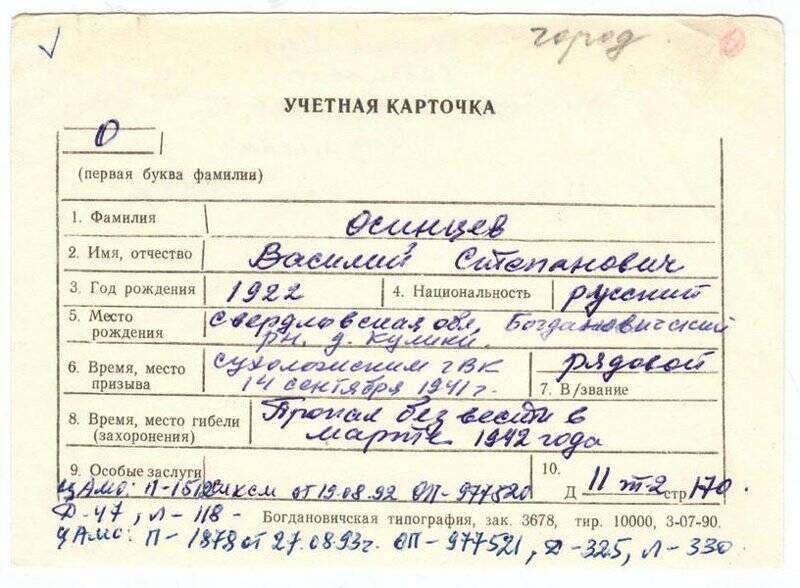 город
УЧЕТНАЯ КАРТОЧКА
О
(первая буква фамилии)
1. Фамилия Осинцев
2. Имя, отчество Василий Степанович
3. Год рождения 1922 4. Национальность русский
5. Место рождения Свердловская обл, Богдановичский
рн. д. Кулики.
6. Время, место призыва Сухоложским гВК
14 сентября 1941 г.
рядовой
7. В/звание
8. Время, место гибели (захоронения) Пропал без вести в
марте 1942 года
9. Особые заслуги
10.
Д 11 т-2 стр 170.
ЦАМО: П-1512 от 19.08.92 ОП-977520
Д-47, Л-118-
Богдановичская типография, зак. 3678, тир. 10000, 3-07-90.
ЦАМО: П-1878 от 27.08.93г. ОП-977521, Д-325, Л-330.